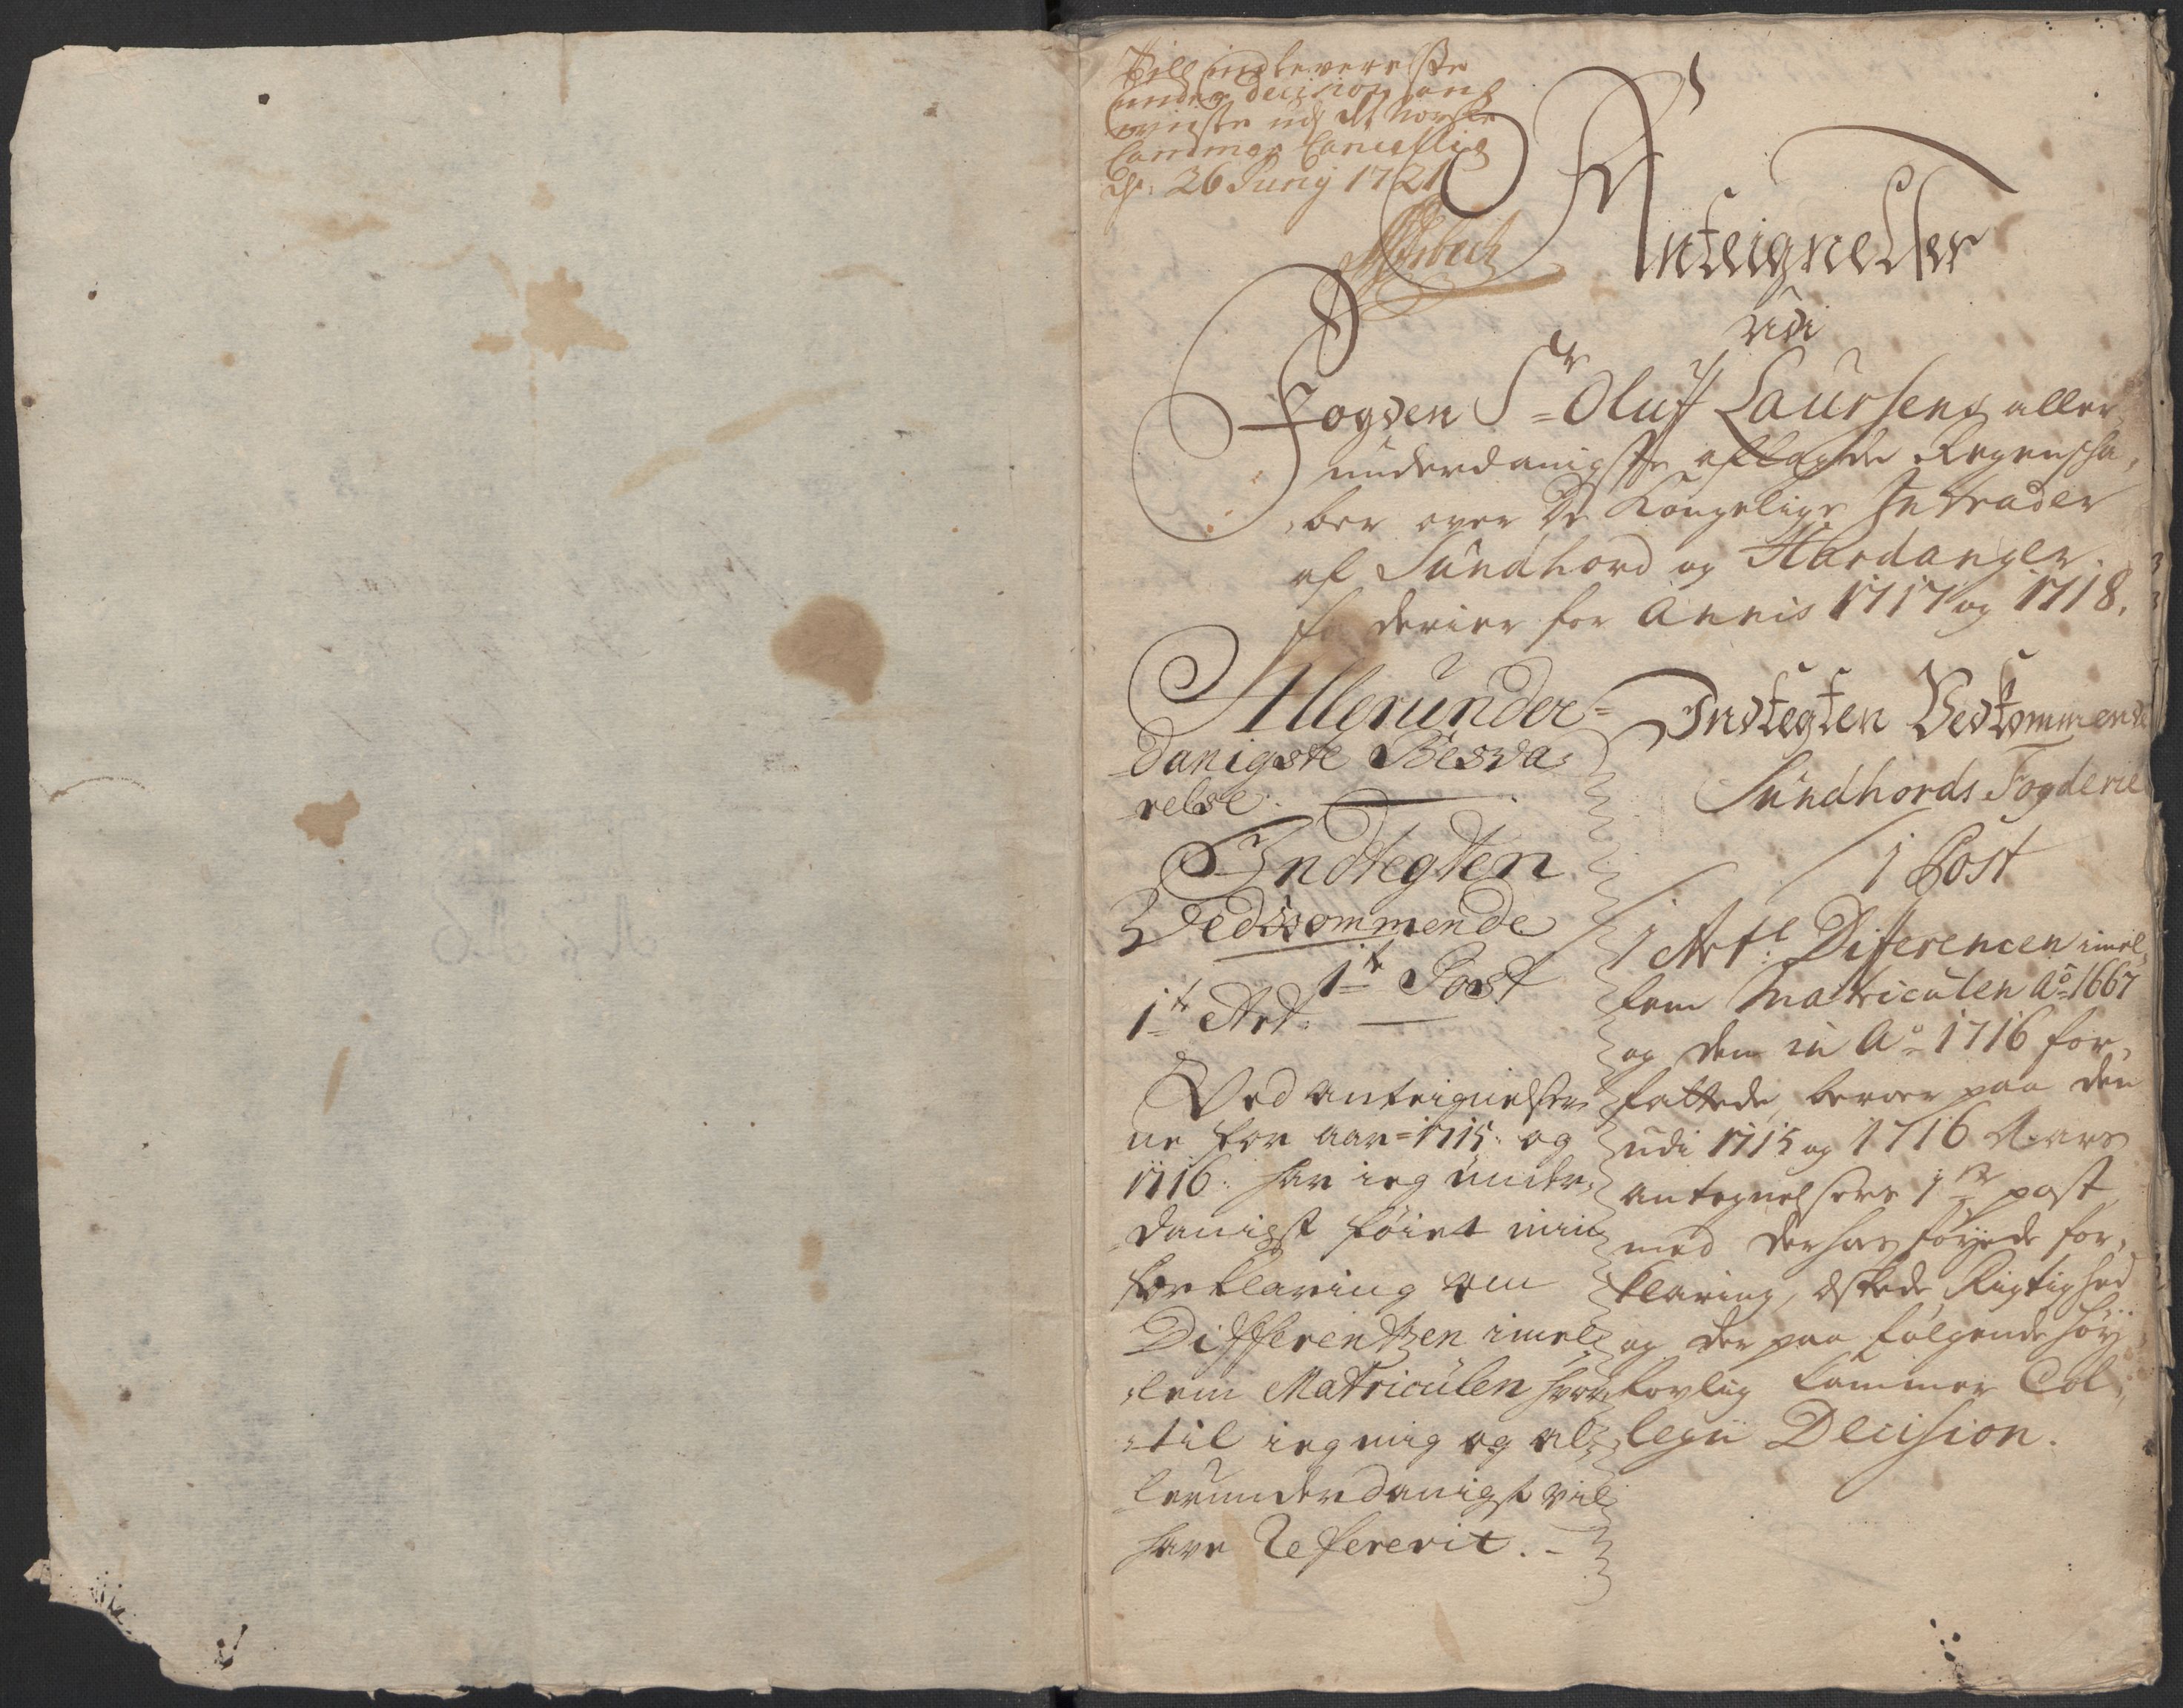 indleverede
under decision
udj det Norske
Cammer Cancellie
d: 26 Junij 1721
Anteignelser
udi
Fogden Sr Oluf Laursens aller
underdanigste aflagde Regenscha,
,ber over De Kongelige Intrader
af Sundhord og Hardanger
fogderier for Annis 1717 og 1718.
Allerunder=
danigste Besva,
relse.
Indtegten
Vedkommende
1te Post
1te Art:
Ved anteignelser
ne for aar=1715: og
1716: har ieg under,
danigst føiet min
forklaring om
Differentzen imel,
,lem Matriculen hvor,
,til ieg mig og al,
lerunderdanigst vil
have Refererit.
Indtegten Vedkommende
Sundhords Fogderie
1 Post
1 Artl: Differencen imel,
lem Matriculen Ao 1667
og den in Ao 1716 for,
fattede, beroer paa den
udi 1715 og 1716 Aars
antegnelsers 1te post,
med derhos føyede for,
klaring, Rigtighed
og der paa følgende høy
lovlig Cammer Col,
legii Decision.